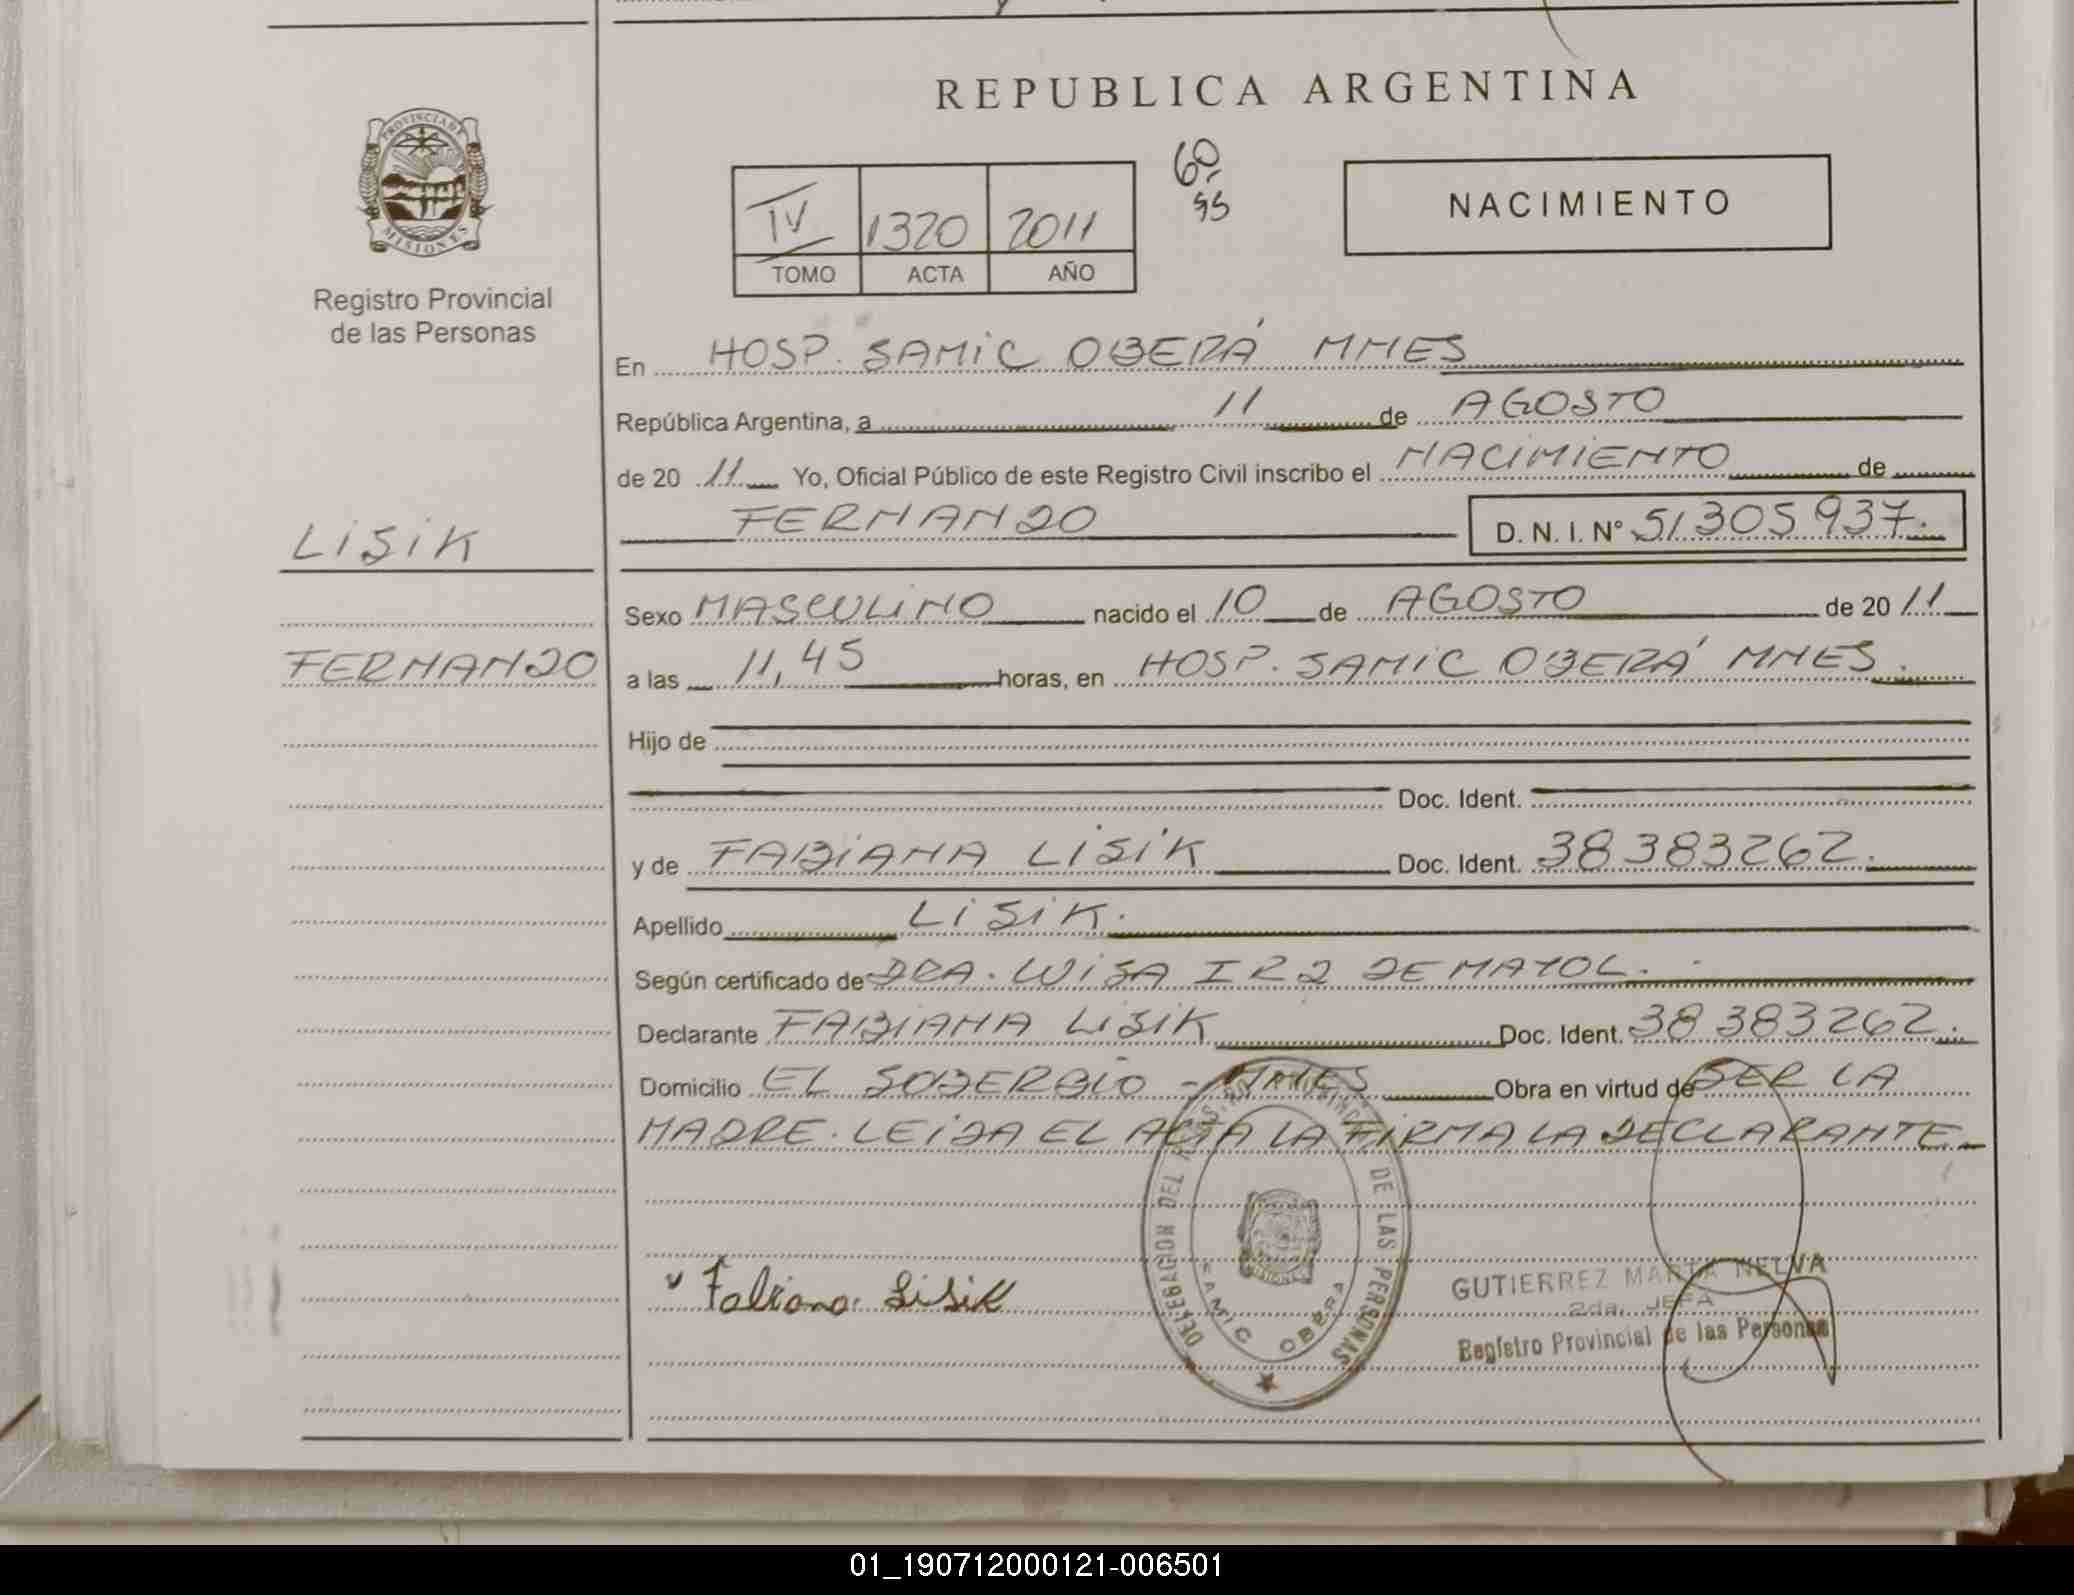 REPUBLICA ARGENTINA
PROVINCIA DE MISIONES
Registro Provincial
de las Personas
IV 1320 2011
TOMO ACTA AÑO
60,
55
NACIMIENTO
En HOSP. SAMIC OBERÁ MNES
República Argentina, a 11 de AGOSTO
de 20 11 Yo, Oficial Público de este Registro Civil inscribo el NACIMIENTO de
LISIK
FERNANDO D. N. I. N° 51305937.
Sexo MASCULINO nacido el 10 de AGOSTO de 20 11
FERNANDO
a las 11,45 horas, en HOSP. SAMIC OBERÁ MNES.
Hijo de
Doc. Ident.
y de FABIANA LISIK Doc. Ident. 38383262.
Apellido LISIK.
Según certificado de DRA. LUISA DE MAYOL.
Declarante FABIANA LISIK Doc. Ident. 38383262.
Domicilio EL SOBERBIO - MNES Obra en virtud de SER LA
MADRE. LEIDA EL ACTA LA FIRMA LA DECLARANTE
Fabiana Lisik
DELEGACION DEL REGISTRO PROVINCIAL DE LAS PERSONAS
SAMIC OBERA
GUTIERREZ MARTA NELVA
2da. JEFA
Registro Provincial de las Personas
01_190712000121-006501